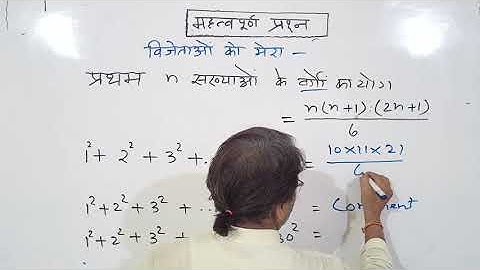 महत्वपूर्ण प्रश्न
विजेताओं को मेरा –
प्रथम n संख्याओं के वर्गों का योग
= n(n+1).(2n+1)
6
1² + 2² + 3² + .. = 10×11×21
6
1² + 2² + 3² + ... = Comment
1² + 2² + 3² + 30² =